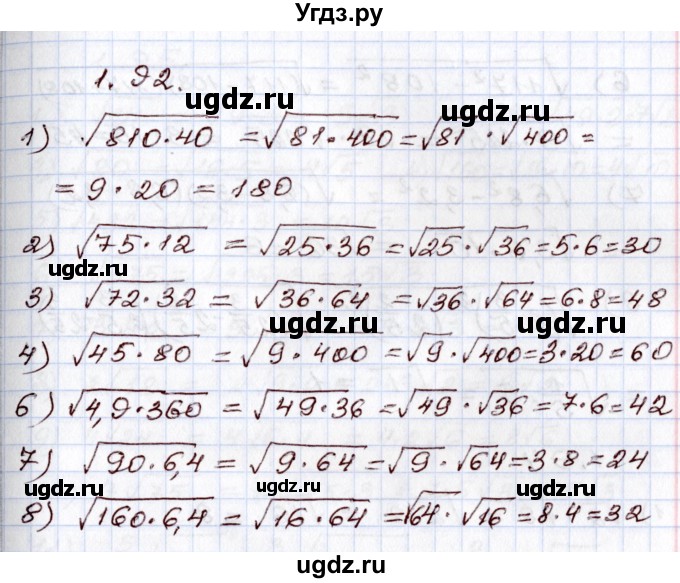 Угдз.ру
1.92.
ugdz.ru
1) √810·40 = √81·400 = √81 · √400 =
ugdz.ru
= 9·20 = 180
2) √75·12 = √25·36 = √25 · √36 = 5·6 = 30
ugdz.ru
3) √72·32 = √36·64 = √36 · √64 = 6·8 = 48
ugdz.ru
ugdz.ru
4) √45·80 = √9·400 = √9 · √400 = 3·20 = 60
6) √4,9·360 = √49·36 = √49 · √36 = 7·6 = 42
7) √90·6,4 = √9·64 = √9 · √64 = 3·8 = 24
ugdz.ru ugdz.ru ugdz.ru
8) √160·6,4 = √16·64 = √64 · √16 = 8·4 = 32